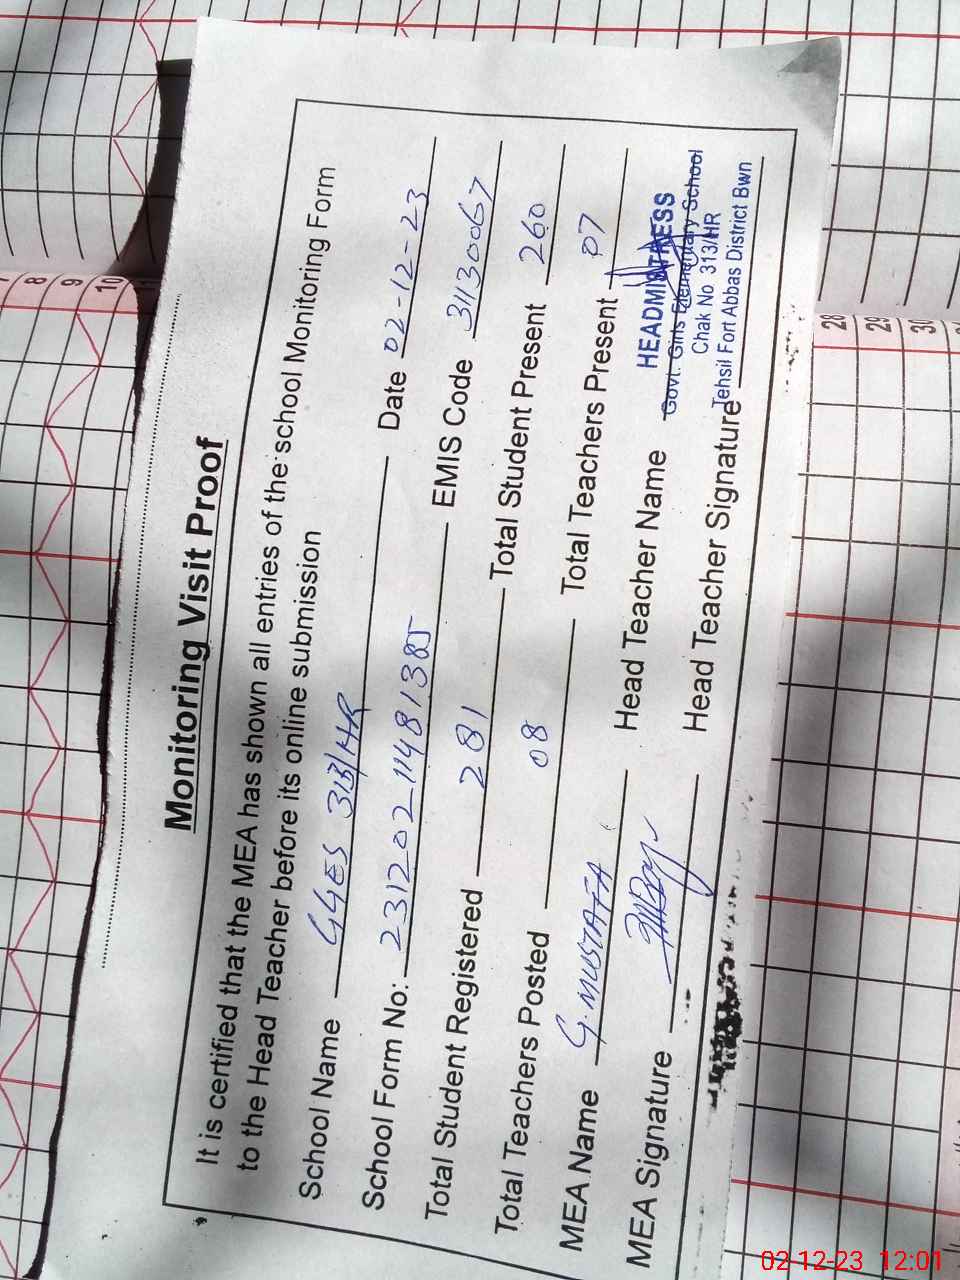 Monitoring Visit Proof
It is certified that the MEA has shown all entries of the school Monitoring Form
to the Head Teacher before its online submission
School Name GGES 313/HR Date 02-12-23
School Form No: 2312021481385 EMIS Code 31130067
Total Student Registered 281 Total Student Present 260
Total Teachers Posted 08 Total Teachers Present 07
MEA Name G. MUSTAFA Head Teacher Name
MEA Signature Head Teacher Signature
HEADMISTRESS
Govt. Girls Elementary School
Chak No 313/HR
Tehsil Fort Abbas District Bwn
8
9
10
28
29
30
02-12-23 12:01